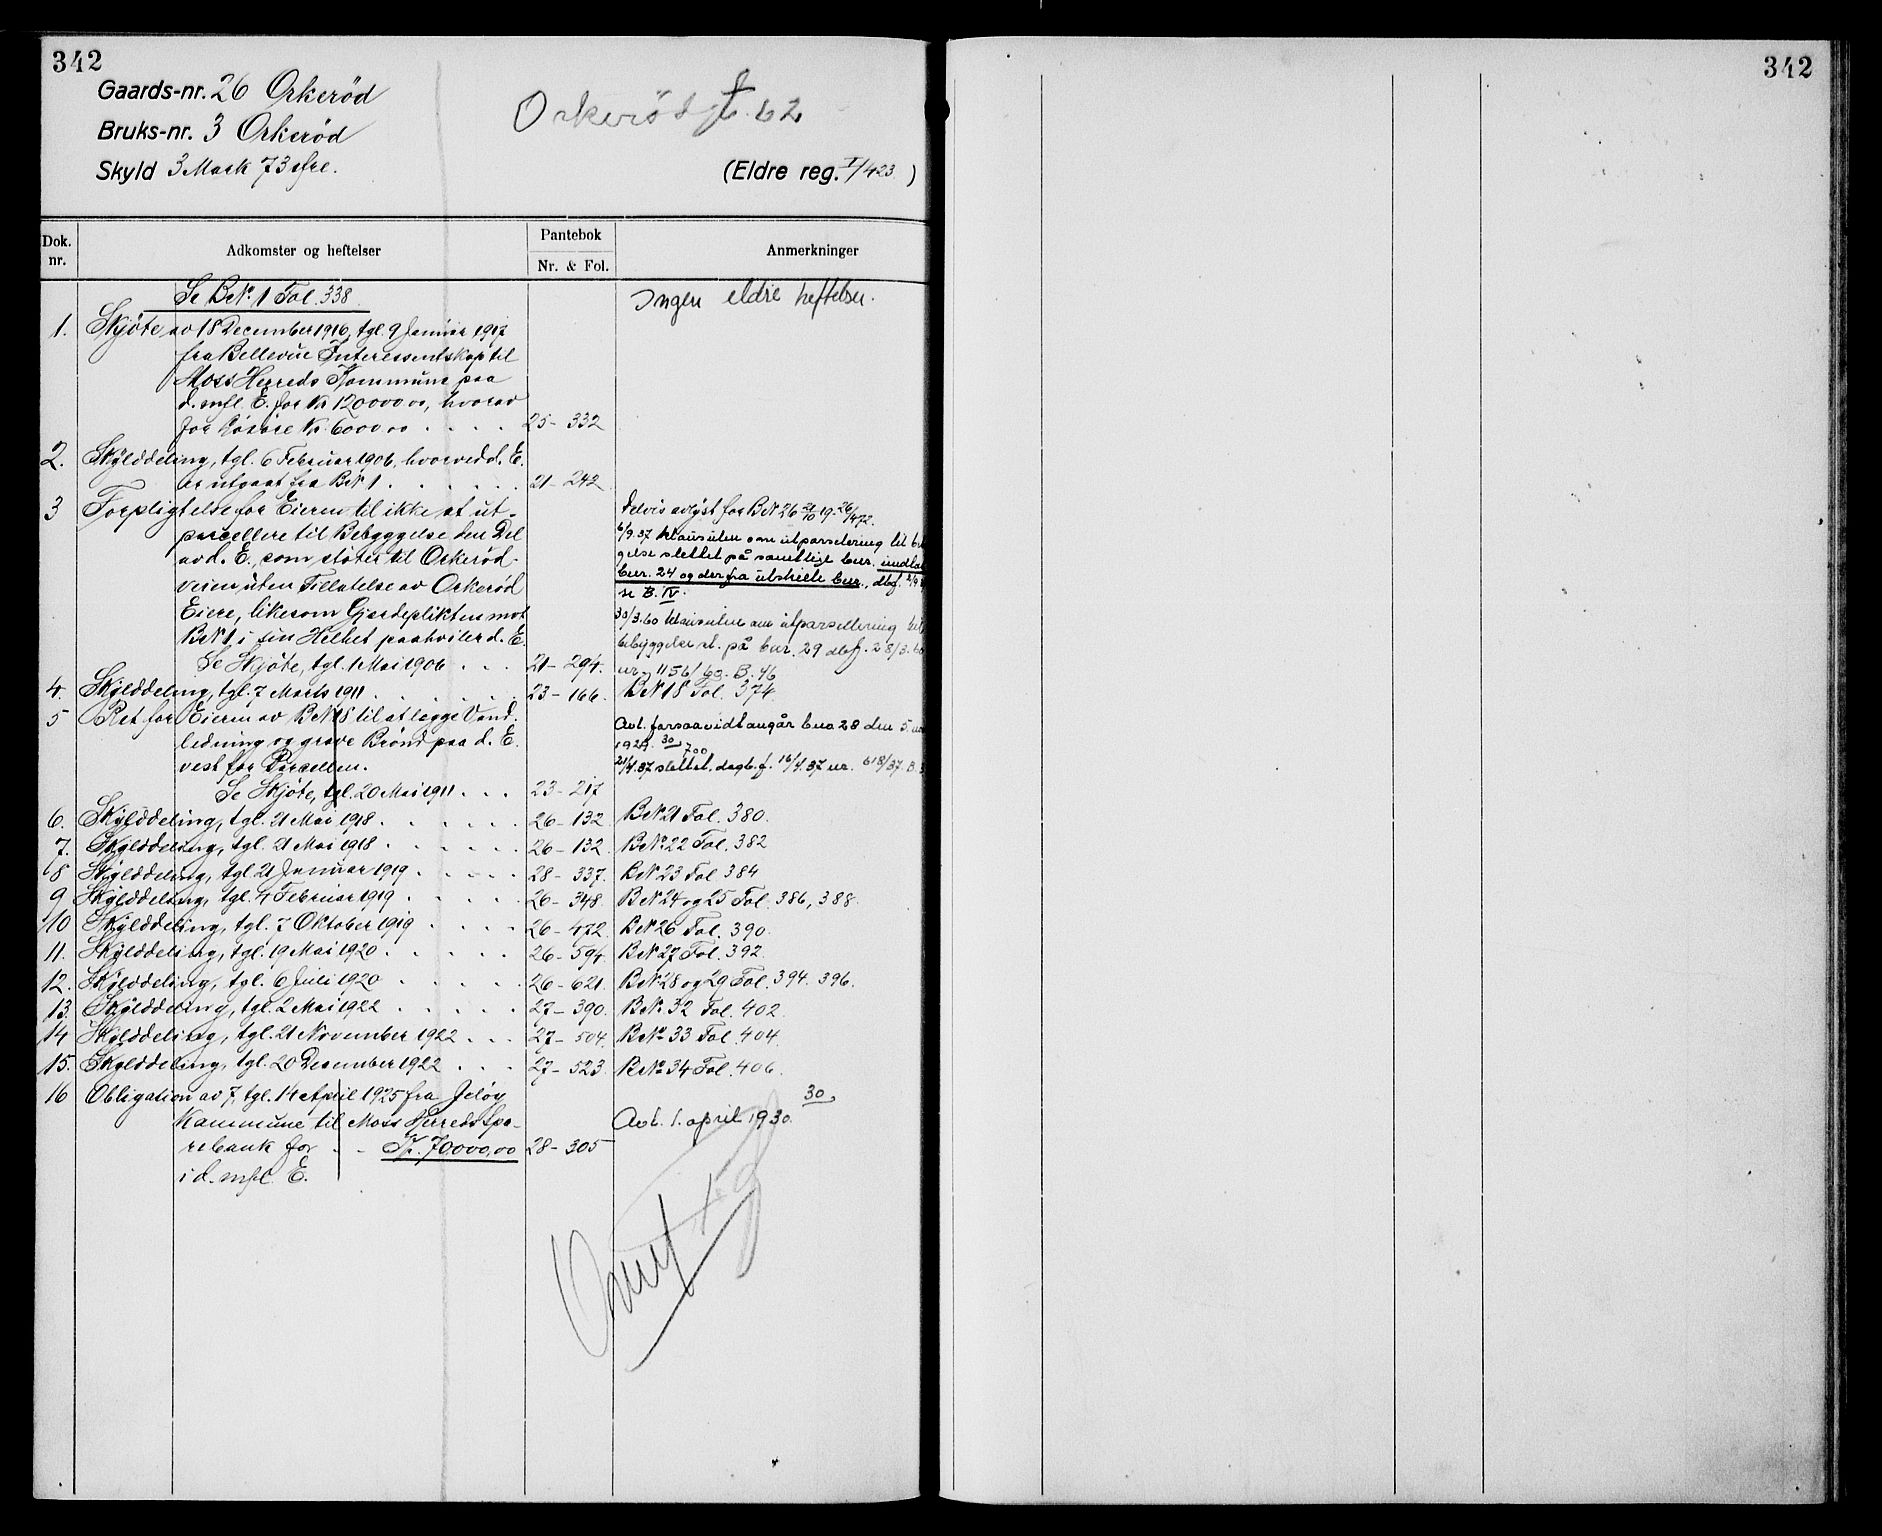 342
Gaards-nr. 26 Orkerød
Bruks-nr. 3 Orkerød
Skyld 3 Mark 73 øre.
Orkerödgt. 62
(Eldre reg. I/423)
Dok. nr.
Adkomster og heftelser
Pantebok
Nr. & Fol.
Anmerkninger
Se BrNo. 1 Fol. 338
Ingen eldre heftelser.
1. Skjöte av 18 December 1916, tgl. 9 Januar 1917
fra Bellevue Interessentskap til
Moss Herreds Kommune paa
d. mfl. E. for Kr 120000.00, hvorav
for Lösöre Kr. 6000.00 . . . . 25 - 332
2. Skylddeling, tgl. 6 Februar 1906, hvorved d. E.
er utgaat fra BrN 1 . . . . . . 21 - 242
3 Forpligtelse for Eieren til ikke at ut-
parcellere til Bebyggelse den Del
av d. E., som stöter til Orkeröd-
veien uten Tillatelse av Orkeröd
Eiere, likesom Gjerdeplikten mot
BrN 1 i sin Helhet paahviler d. E.
Se Skjöte, tgl. 1 Mai 1906 . . . 21 - 294.
Delvis avlyst for BrN 26 21/10 19. 26/472.
6/9.37 klausulen om utparselering til
gelse slettet på samtlige bnr.
bnr. 24 og derfra utskilte bnr., dbf.
se B. IV.
30/3.60 klausulen om utparsellering
bebyggelse sl. på bnr. 29 dbf. 28/3.
nr. 1156/60. B. 46
4. Skylddeling, tgl. 7 Marts 1911 . . . . . . 23 - 166. BrN 18 Fol. 374
5 Ret for Eieren av BrN 18 til at lægge Vand-
ledning og grave Brönd paa d. E.
vest for Parcellen.
Se Skjöte, tgl. 20 Mai 1911 . . . 23 - 217
Avl. forsaavidt angår bno 28 den 5.
30/700
21/4.37 slettet. dagb.f. 16/4.37 nr. 618/37. B.
6. Skylddeling, tgl. 21 Mai 1918 . . . . . . 26 - 132 BrN 21 Fol. 380.
7. Skylddeling, tgl. 21 Mai 1918 . . . . . . 26 - 132. BrNo 22 Fol. 382
8 Skylddeling, tgl 21 Januar 1919 . . . . . 28 - 337. BrN 23 Fol 384
9 Skylddeling, tgl. 4 Februar 1919 . . . . . 26 - 348. BrN 24 og 25 Fol. 386, 388.
10 Skylddeling, tgl. 7 Oktober 1919 . . . . 26 - 472. BrN 26 Fol. 390.
11. Skylddeling, tgl. 19 Mai 1920 . . . . . 26 - 594. BrN 27 Fol. 392.
12. Skylddeling, tgl. 6 Juli 1920 . . . . . 26 - 621. BrN 28 og 29 Fol. 394. 396.
13. Skylddeling, tgl. 2 Mai 1922 . . . . . 27 - 390. BrN. 32 Fol. 402
14 Skylddeling, tgl. 21 November 1922 . . . 27 - 504. BrNo 33 Fol. 404.
15. Skylddeling, tgl. 20 December 1922 . . . 27 - 523. BrNo 34 Fol. 406.
16 Obligation av 7, tgl. 14 April 1925 fra Jeløy
Kommune til Moss Herreds Spa-
rebank for . . Kr. 70000,00 28 - 305
i d. mfl. E.
30
Avl. 1. april 1930.
342